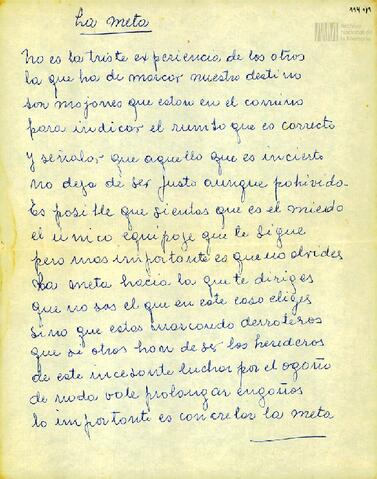 114-019
Archivo
Nacional de
la Memoria
La meta
No es la triste experiencia de los otros
la que ha de marcar nuestro destino
son mojones que estan en el camino
para indicar el rumbo que es correcto
Y señalar que aquello que es incierto
no deja de ser justo aunque pohivido
Es posible que sientas que es el miedo
el unico equipaje que te sigue
pero mas importante es que no olvides
La meta hacia la que te diriges
que no sos el que en este caso eliges
sino que estas marcando derroteros
que si otros han de ser los herederos
de este incesante luchar por el ogaño
de nada vale prolongar engaños
lo importante es concretar la meta